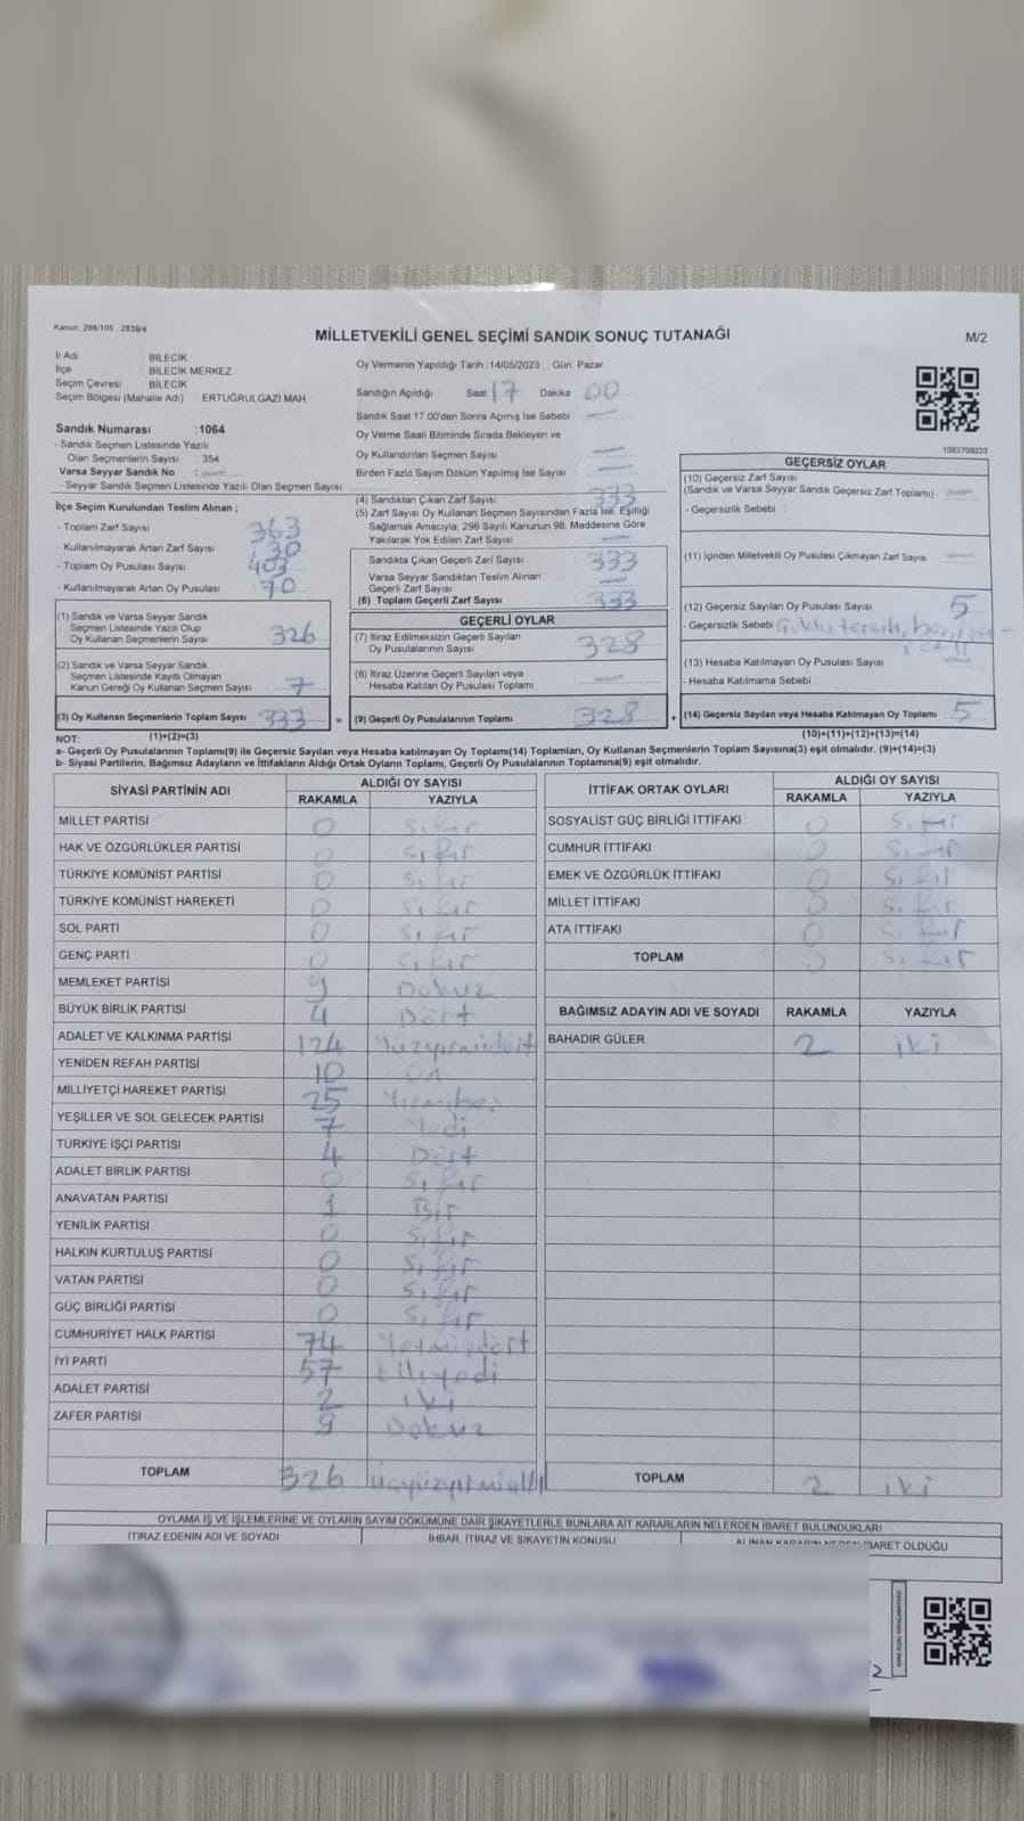 Kanun: 298/105 2839/4
MİLLETVEKİLİ GENEL SEÇİMİ SANDIK SONUÇ TUTANAĞI
M/2
İl Adı BİLECİK
İlçe BİLECİK MERKEZ
Seçim Çevresi BİLECİK
Seçim Bölgesi (Mahalle Adı) ERTUĞRULGAZİ MAH.
Sandık Numarası :1064
- Sandık Seçmen Listesinde Yazılı
Olan Seçmenlerin Sayısı 354
Varsa Seyyar Sandık No :
- Seyyar Sandık Seçmen Listesinde Yazılı Olan Seçmen Sayısı
İlçe Seçim Kurulundan Teslim Alınan ;
- Toplam Zarf Sayısı 363
- Kullanılmayarak Artan Zarf Sayısı 30
- Toplam Oy Pusulası Sayısı 403
- Kullanılmayarak Artan Oy Pusulası 70
(1) Sandık ve Varsa Seyyar Sandık
Seçmen Listesinde Yazılı Olup
Oy Kullanan Seçmenlerin Sayısı 326
(2) Sandık ve Varsa Seyyar Sandık
Seçmen Listesinde Kayıtlı Olmayan
Kanun Gereği Oy Kullanan Seçmen Sayısı 7
(3) Oy Kullanan Seçmenlerin Toplam Sayısı 333
(1)+(2)=(3)
Oy Vermenin Yapıldığı Tarih :14/05/2023 Gün: Pazar
Sandığın Açıldığı Saat 17 Dakika 00
Sandık Saat 17.00'den Sonra Açılmış İse Sebebi
Oy Verme Saati Bitiminde Sırada Bekleyen ve
Oy Kullandırılan Seçmen Sayısı
Birden Fazla Sayım Döküm Yapılmış İse Sayısı
(4) Sandıktan Çıkan Zarf Sayısı 333
(5) Zarf Sayısı Oy Kullanan Seçmen Sayısından Fazla İse, Eşitliği
Sağlamak Amacıyla; 298 Sayılı Kanunun 98. Maddesine Göre
Yakılarak Yok Edilen Zarf Sayısı
Sandıkta Çıkan Geçerli Zarf Sayısı 333
Varsa Seyyar Sandıktan Teslim Alınan
Geçerli Zarf Sayısı
(6) Toplam Geçerli Zarf Sayısı 333
GEÇERLİ OYLAR
(7) İtiraz Edilmeksizin Geçerli Sayılan
Oy Pusulalarının Sayısı 328
(8) İtiraz Üzerine Geçerli Sayılan veya
Hesaba Katılan Oy Pusulası Toplamı
= (9) Geçerli Oy Pusulalarının Toplamı 328
1083709223
GEÇERSİZ OYLAR
(10) Geçersiz Zarf Sayısı
(Sandık ve Varsa Seyyar Sandık Geçersiz Zarf Toplamı)
- Geçersizlik Sebebi :
(11) İçinden Milletvekili Oy Pusulası Çıkmayan Zarf Sayısı
(12) Geçersiz Sayılan Oy Pusulası Sayısı 5
- Geçersizlik Sebebi
(13) Hesaba Katılmayan Oy Pusulası Sayısı
- Hesaba Katılmama Sebebi
+ (14) Geçersiz Sayılan veya Hesaba Katılmayan Oy Toplamı 5
(10)+(11)+(12)+(13)=(14)
NOT:
a- Geçerli Oy Pusulalarının Toplamı(9) ile Geçersiz Sayılan veya Hesaba katılmayan Oy Toplamı(14) Toplamları, Oy Kullanan Seçmenlerin Toplam Sayısına(3) eşit olmalıdır. (9)+(14)=(3)
b- Siyasi Partilerin, Bağımsız Adayların ve İttifakların Aldığı Ortak Oyların Toplamı, Geçerli Oy Pusulalarının Toplamına(9) eşit olmalıdır.
SİYASİ PARTİNİN ADI ALDIĞI OY SAYISI
RAKAMLA YAZIYLA
MİLLET PARTİSİ 0 Sıfır
HAK VE ÖZGÜRLÜKLER PARTİSİ 0 Sıfır
TÜRKİYE KOMÜNİST PARTİSİ 0 Sıfır
TÜRKİYE KOMÜNİST HAREKETİ 0 Sıfır
SOL PARTİ 0 Sıfır
GENÇ PARTİ 0 Sıfır
MEMLEKET PARTİSİ 9 Dokuz
BÜYÜK BİRLİK PARTİSİ 4 Dört
ADALET VE KALKINMA PARTİSİ 124 Yüzyirmidört
YENİDEN REFAH PARTİSİ 10 On
MİLLİYETÇİ HAREKET PARTİSİ 25 Yirmibeş
YEŞİLLER VE SOL GELECEK PARTİSİ 7 Yedi
TÜRKİYE İŞÇİ PARTİSİ 4 Dört
ADALET BİRLİK PARTİSİ 0 Sıfır
ANAVATAN PARTİSİ 1 Bir
YENİLİK PARTİSİ 0 Sıfır
HALKIN KURTULUŞ PARTİSİ 0 Sıfır
VATAN PARTİSİ 0 Sıfır
GÜÇ BİRLİĞİ PARTİSİ 0 Sıfır
CUMHURİYET HALK PARTİSİ 74 Yetmişdört
İYİ PARTİ 57 Elliyedi
ADALET PARTİSİ 2 İki
ZAFER PARTİSİ 9 Dokuz
TOPLAM 326 Üçyüzyirmialtı
İTTİFAK ORTAK OYLARI ALDIĞI OY SAYISI
RAKAMLA YAZIYLA
SOSYALİST GÜÇ BİRLİĞİ İTTİFAKI 0 Sıfır
CUMHUR İTTİFAKI 0 Sıfır
EMEK VE ÖZGÜRLÜK İTTİFAKI 0 Sıfır
MİLLET İTTİFAKI 0 Sıfır
ATA İTTİFAKI 0 Sıfır
TOPLAM 0 Sıfır
BAĞIMSIZ ADAYIN ADI VE SOYADI RAKAMLA YAZIYLA
BAHADIR GÜLER 2 iki
TOPLAM 2 iki
OYLAMA İŞ VE İŞLEMLERİNE VE OYLARIN SAYIM DÖKÜMÜNE DAİR ŞİKAYETLERLE BUNLARA AİT KARARLARIN NELERDEN İBARET BULUNDUKLARI
İTİRAZ EDENİN ADI VE SOYADI İHBAR, İTİRAZ VE ŞİKAYETİN KONUSU ALINAN KARARIN NEDEN İBARET OLDUĞU